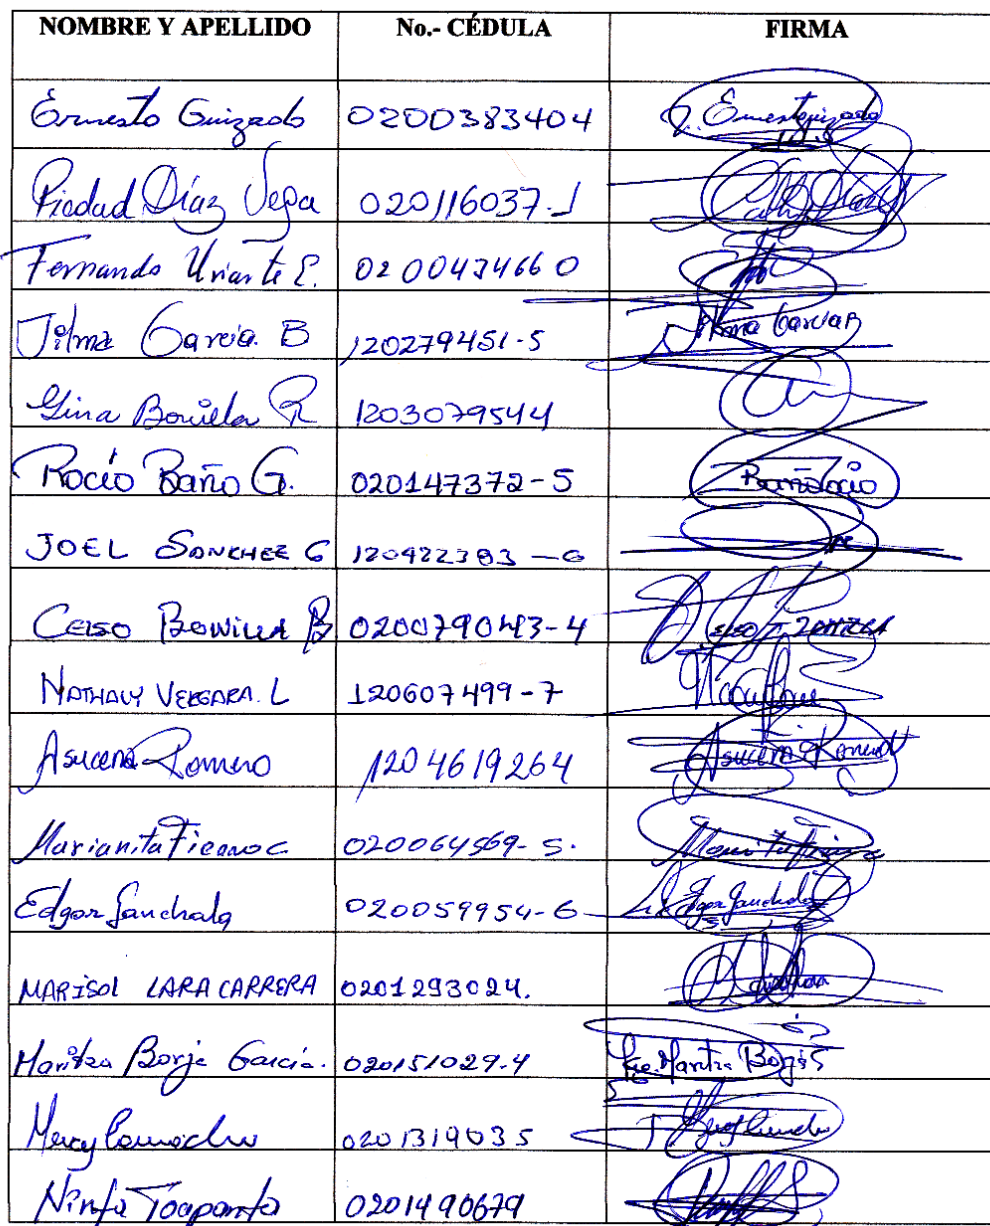 NOMBRE Y APELLIDO No.- CÉDULA FIRMA
Ernesto Guizado 0200383404
Piedad Díaz Vega 020116037-1
Fernando Uriarte E. 0200434660
Jilma García. B 120279451-5 Jilma García B
Gina Bonilla R 1203079544
Rocío Baño G. 020147372-5 Baño Rocío
JOEL SANCHEZ G 120422383-6
CELSO BONILLA B 020079043-4
NATHALY VERGARA. L 120607499-7
Asucena Romero 1204619264 Asucena Romero
Marianita Ficano C 020064569-5.
Edgar Sanchala 020059954-6 Edgar Sanchala
MARISOL LARA CARRERA 0201293024.
Maritza Borja García. 020151029-4 Maritza Borja
Mercy Camacho 0201319035
Ninfa Toapanta 0201490679